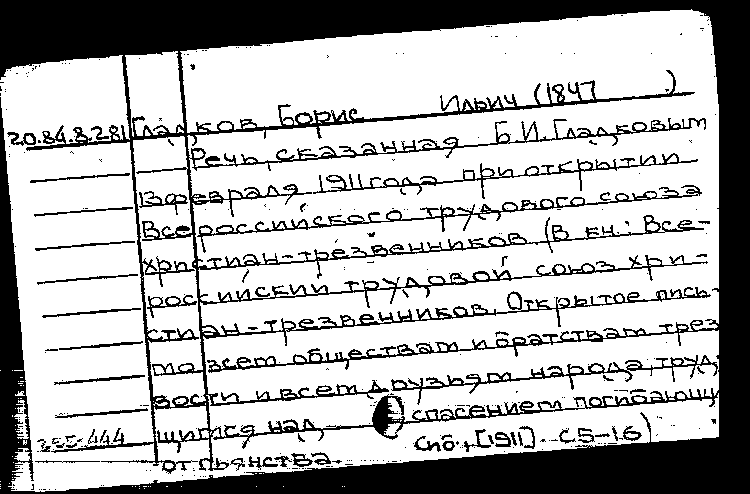 20.84.8.281 Гладков, Борис Ильич (1847 )
Речь, сказанная Б.И. Гладковым
13 февраля 1911 года при открытии
Всероссийского трудового союза
христиан-трезвенников (В кн.: Все-
российский трудовой союз хри-
стиан-трезвенников. Открытое пись-
мо всем обществам и братствам трез
вости и всем друзьям народа, труд,
щимся над спасением погибающи
от пьянства. Спб., [1911]. С 5-16)
444